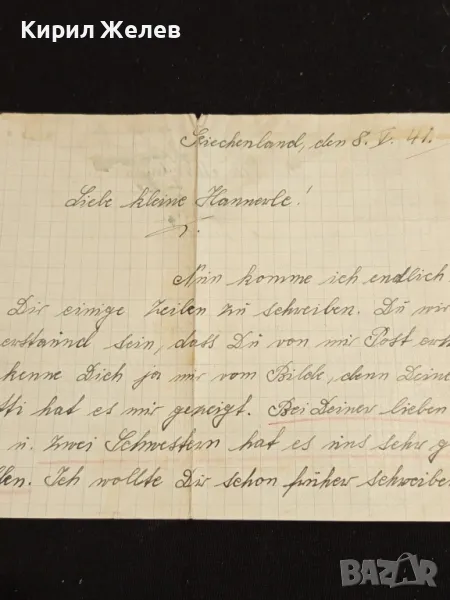 Кирил Желев
Griechenland, den 8. V. 41.
Liebe kleine Hannerle!
Nun komme ich endlich
Dir einige Zeilen zu schreiben. Du wir
erstaund sein, dass Du von mir Post erh
kenne Dich ja nur vom Bilde, denn Deine
tti hat es mir gezeigt. Bei Deiner lieben
u. zwei Schwestern hat es uns sehr g
llen. Ich wollte Dir schon früher schreiben
BAZAR